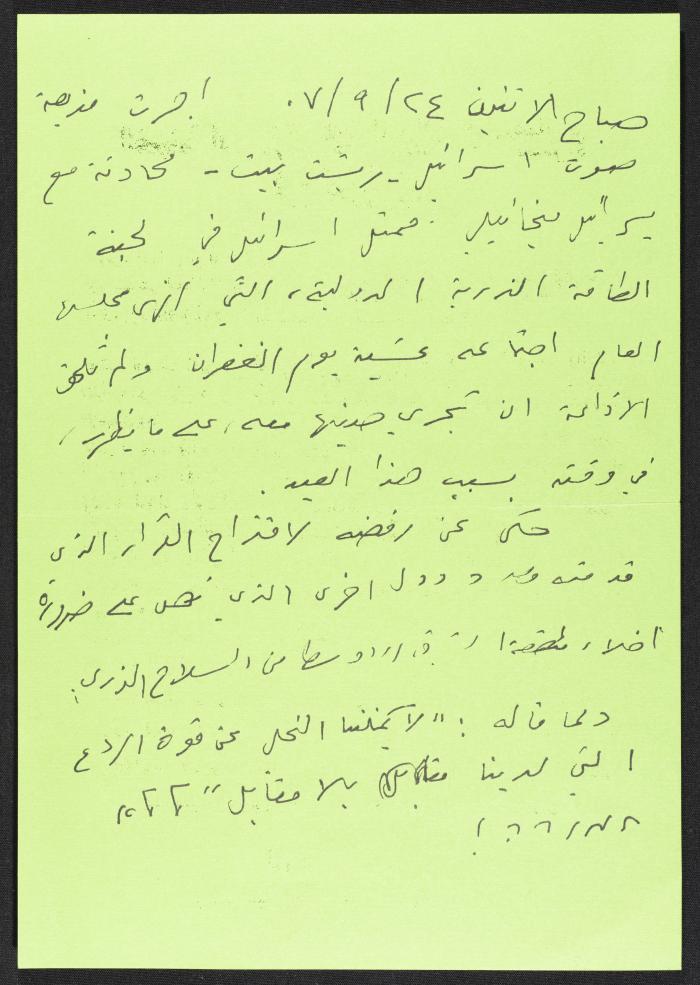 صباح الاثنين ٢٤/٩/٠٧ اجرت مذيعة
صوت اسرائيل - ريشت بيت - محادثة مع
يسرائيل ميخائيلي: ممثل اسرائيل في لجنة
الطاقة الذرية الدولية، التي انهى مجلسها
العام اجتماعه عشية يوم الغفران ولم تلحق
الاذاعة ان تجري حديثها معه، على ما يظهر،
في وقته بسبب هذا العيد.
حكى عن رفضه لاقتراح القرار الذي
قدمته ودول اخرى الذي نص على ضرورة
اخلاء منطقة الشرق الاوسط من السلاح الذري.
ومما قاله: "لا يمكننا التخلي عن قوة الردع
التي لدينا مقابل بلا مقابل"